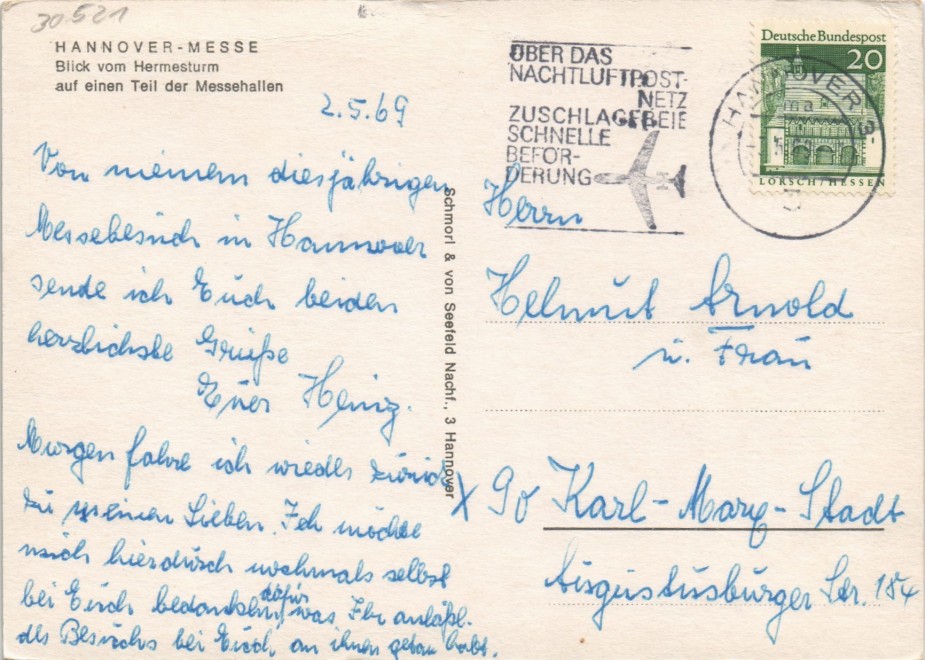 30521
HANNOVER-MESSE
Blick vom Hermesturm
auf einen Teil der Messehallen
2.5.69
Von meinem diesjährigen
Messebesuch in Hannover
sende ich Euch beiden
herzlichste Grüße
Euer Heinz.
Morgen fahre ich wieder zurück
zu meinen Lieben. Ich möchte
mich hierdurch nochmals selbst
bei Euch bedanken, dafür
was Ihr anläßl.
des Besuchs bei Euch an ihnen getan habt.
Schmorl & von Seefeld Nachf., 3 Hannover
ÜBER DAS
NACHTLUFTPOST-
NETZ
ZUSCHLAGFREIE
SCHNELLE
BEFÖR-
DERUNG
HANNOVER 3
Deutsche Bundespost
20
LORSCH/HESSEN
Herrn
Helmut Arnold
u. Frau
X 90 Karl-Marx-Stadt
Augustusburger Str. 184